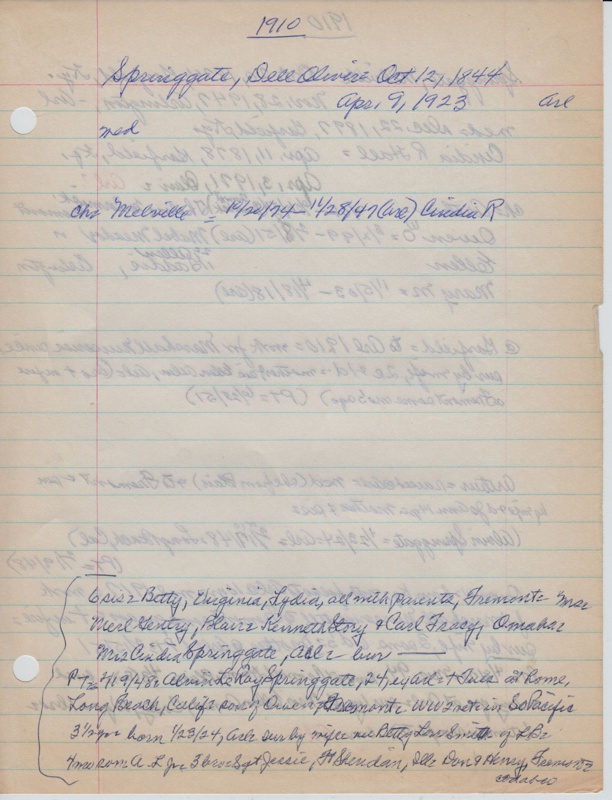 1910
Springgate, Dell Olivir= Oct. 12, 1844
Apr. 9, 1923 Arl
med
Chs "Melville = 10/20/74 - 11/28/47 (Arl) Cindia R
Betty, Virginia, Lydia, all with parents, Fremont= Mrs
Merl Gentry, Blair= Kenneth Story & Carl Tracy, Omaha=
Mrs Cindia Springgate, Arl= bur
4/19/48= Alvin LeRoy Springgate, 24, ex Arl= + Tues at home,
Long Beach, Calif= son of Owen, Fremont= WW2 vet= in So Pacific
3½ yr= born 1/23/24, Arl= sur by wife nee Betty Lou Smith of LB=
4 mo son A L Jr= 3 bro= Sgt Jessie, Ft Sheridan, Ill= Don & Henry, Fremont=